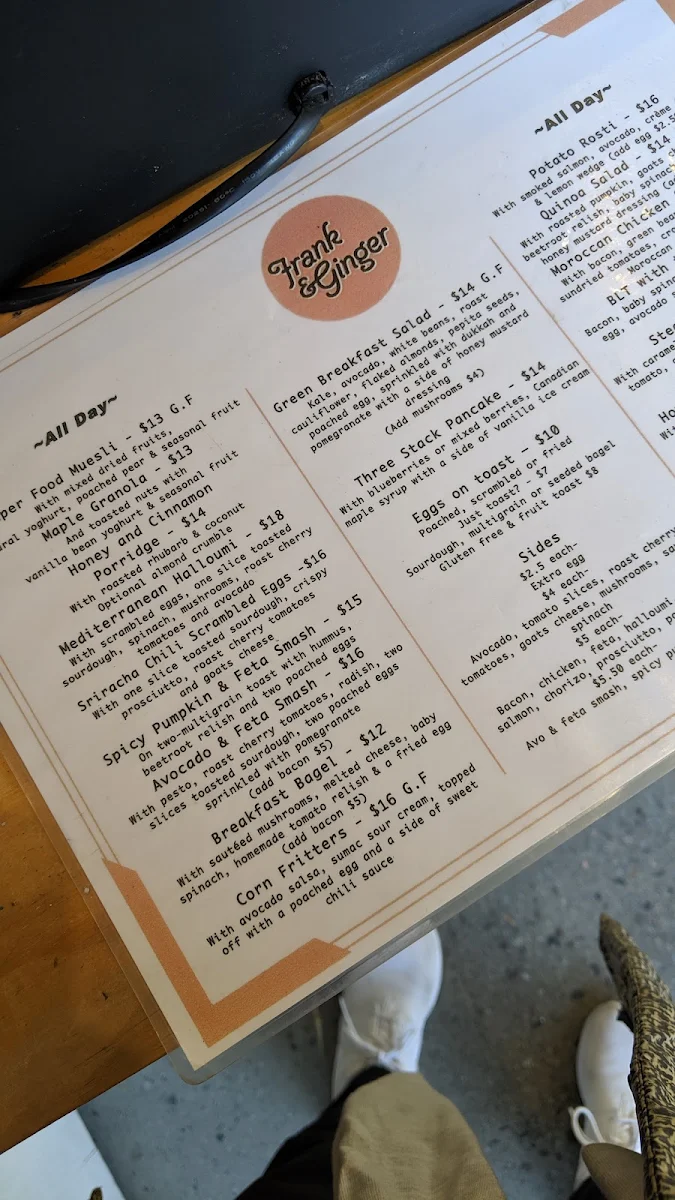 Frank
&Ginger
~All Day~
per Food Muesli - $13 G.F
With mixed dried fruits,
ural yoghurt, poached pear & seasonal fruit
Maple Granola - $13
And toasted nuts with
vanilla bean yoghurt & seasonal fruit
Honey and Cinnamon
Porridge - $14
With roasted rhubarb & coconut
Optional almond crumble
Mediterranean Halloumi - $18
With scrambled eggs, one slice toasted
sourdough, spinach, mushrooms, roast cherry
tomatoes and avocado
Sriracha Chili Scrambled Eggs -$16
With one slice toasted sourdough, crispy
prosciutto, roast cherry tomatoes
and goats cheese
Spicy Pumpkin & Feta Smash - $15
On two-multigrain toast with hummus,
beetroot relish and two poached eggs
Avocado & Feta Smash - $16
With pesto, roast cherry tomatoes, radish, two
slices toasted sourdough, two poached eggs
sprinkled with pomegranate
(add bacon $5)
Breakfast Bagel - $12
With sautéed mushrooms, melted cheese, baby
spinach, homemade tomato relish & a fried egg
(add bacon $5)
Corn Fritters - $16 G.F
With avocado salsa, sumac sour cream, topped
off with a poached egg and a side of sweet
chili sauce
Green Breakfast Salad - $14 G.F
Kale, avocado, white beans, roast
cauliflower, flaked almonds, pepita seeds,
poached egg, sprinkled with dukkah and
pomegranate with a side of honey mustard
dressing
(Add mushrooms $4)
Three Stack Pancake - $14
With blueberries or mixed berries, Canadian
maple syrup with a side of vanilla ice cream
Eggs on toast - $10
Poached, scrambled or fried
Just toast? - $7
Sourdough, multigrain or seeded bagel
Gluten free & fruit toast $8
Sides
$2.5 each-
Extra egg
$4 each-
Avocado, tomato slices, roast cherry
tomatoes, goats cheese, mushrooms, sa
spinach
$5 each-
Bacon, chicken, feta, halloumi
salmon, chorizo, prosciutto, p
$5.50 each-
Avo & feta smash, spicy p
~All Day~
Potato Rosti - $16
With smoked salmon, avocado, crème
& lemon wedge (add egg $2.5
Quinoa Salad - $14
With roasted pumpkin, goats ch
beetroot relish, baby spinac
honey mustard dressing (a
Moroccan Chicken
With bacon, green bea
sundried tomatoes, cr
Moroccan
BLT with
Bacon, baby spin
egg, avocado s
Ste
With carame
tomato,
Ho
Wit